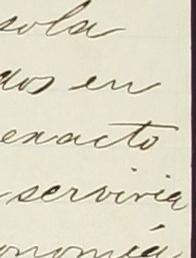 sola
dos en
exacto
serviria
onomía